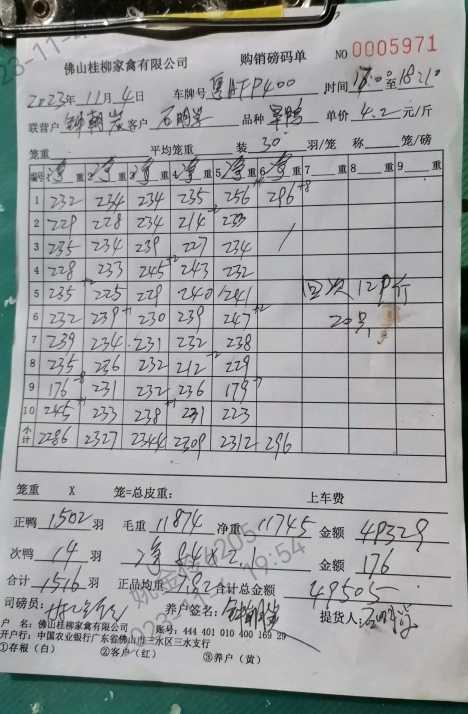 佛山桂柳家禽有限公司 购销磅码单 NO 0005971
2023年11月4日 车牌号 粤AFP400 时间 至18:10
联营户 客户 品种 单价 4.2 元/斤
笼重 平均笼重 装 30 羽/笼 称 笼/磅
编号 1 净重 2 净重 3 净重 4 净重 5 净重 6 净重 7 重 8 重 9 重
1 232 234 234 235 256 296 +8
2 229 228 234 214 +2 233
3 235 234 239 227 234 /
4 228 233 245 +2 243 232
5 235 +2 225 229 240 241 回次129斤
6 232 239 +1 230 239 247 +2 20只
7 239 234 231 232 238
8 235 236 232 212 +2 229
9 176 +8 231 232 236 179
10 245 +1 233 238 +1 231 223
小计 2286 2327 2344 2309 2312 296
笼重 X 笼=总皮重: 上车费
正鸭 1502 羽 毛重 11874 净重 11745 金额 49329
次鸭 14 羽 净 84×2.1 金额 176
合计 1516 羽 正品均重 7.82 合计总金额 49505
司磅员: 养户签名: 提货人:
户 名: 佛山桂柳家禽有限公司 账号: 444 401 010 400 169 29
开户行: 中国农业银行广东省佛山市三水区三水支行
①存根（白） ②客户（红） ③养户（黄）